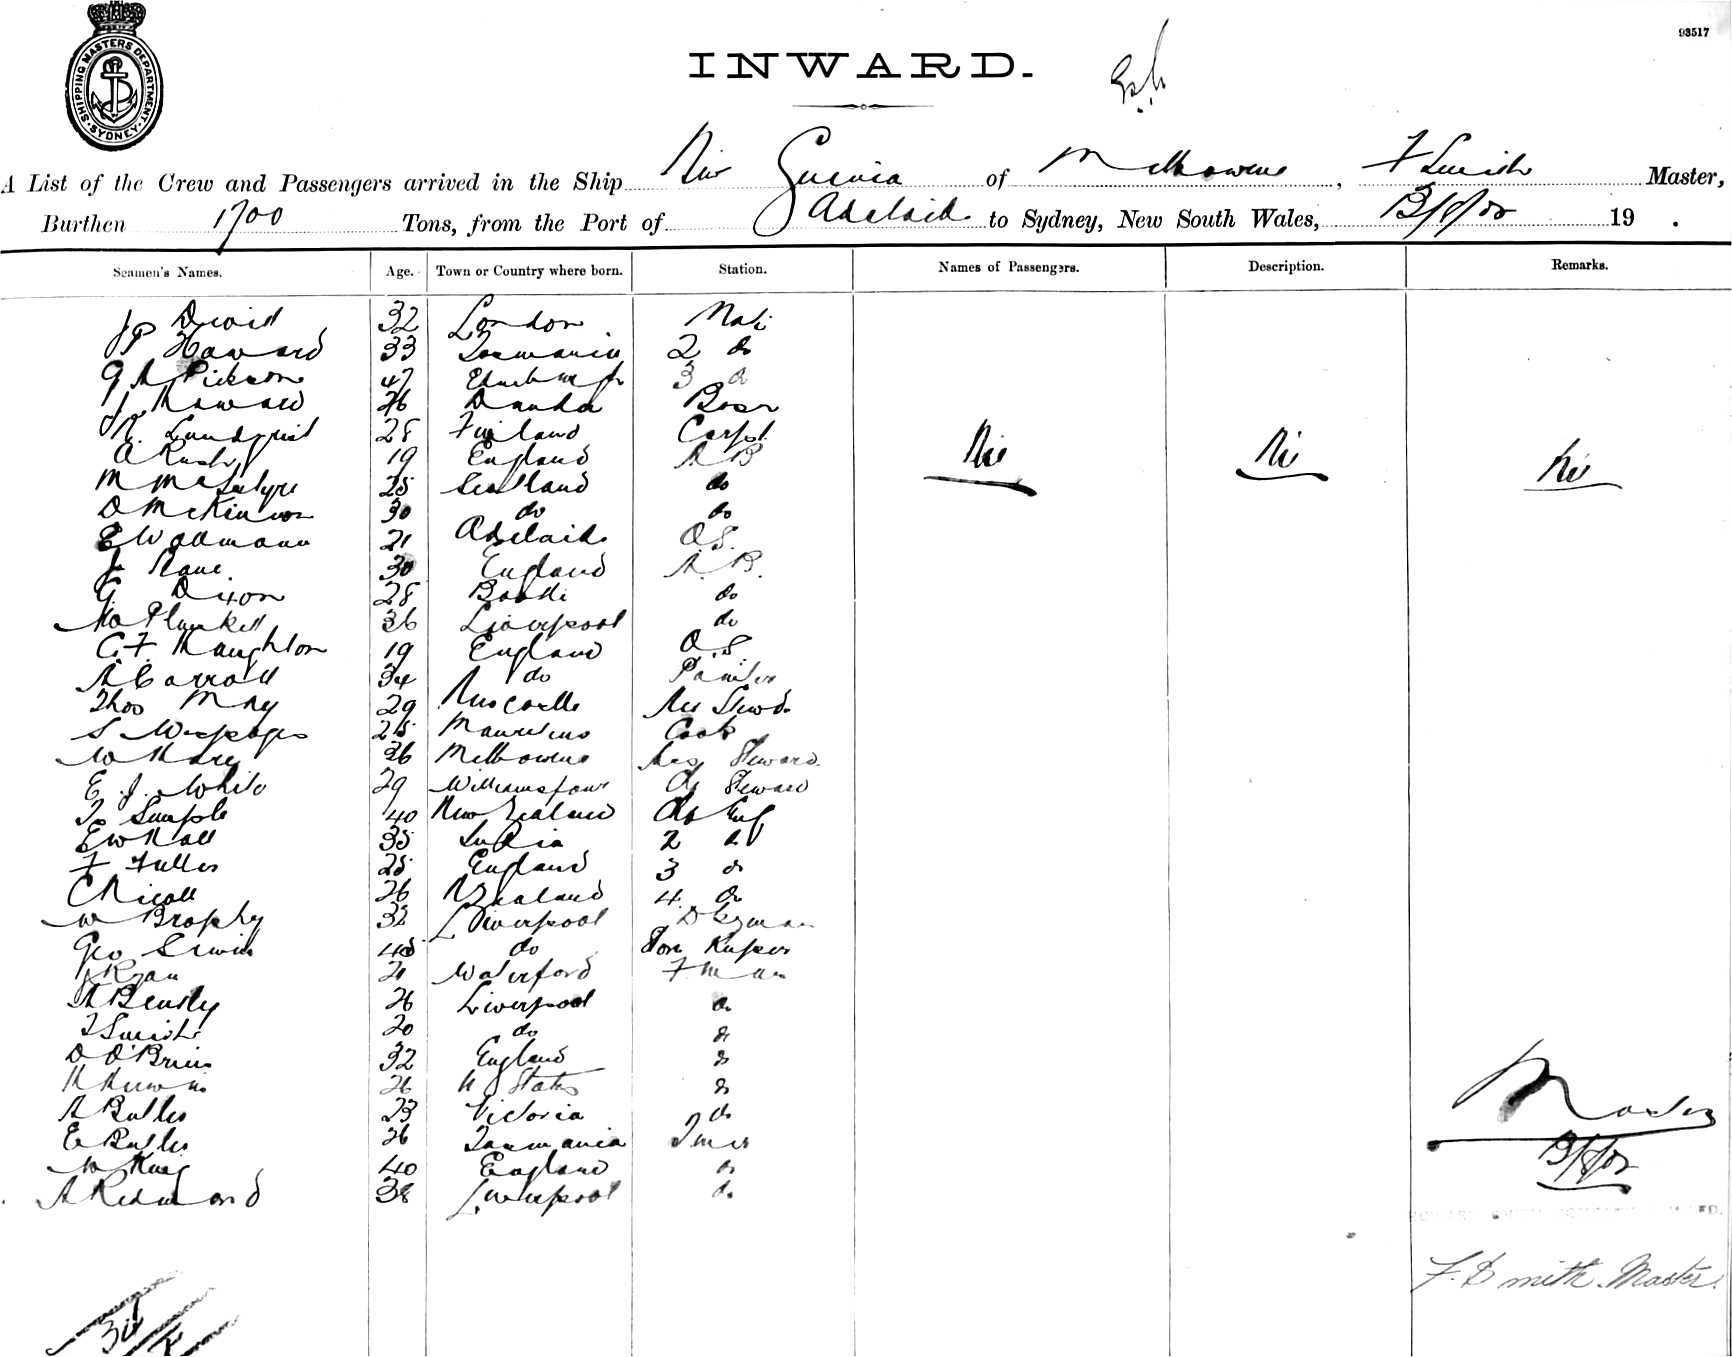 93517
SHIPPING MASTERS DEPARTMENT
SYDNEY
INWARD.
A List of the Crew and Passengers arrived in the Ship Guinea of Melbourne, F Smith Master,
Burthen 1700 Tons, from the Port of Adelaide to Sydney, New South Wales, 19 .
Seamen's Names. Age. Town or Country where born. Station. Names of Passengers. Description. Remarks.
J David 32 London Mate
P Howard 33 Tasmania 2 do
G A Dickson 47 Edinburgh 3 do
J Howard 26 Dundee Bosn
R. Lundquist 28 Finland Carpt. Nil Nil Nil
A Rush 19 England A B
M McIntyre 25 Scotland do
D McKinnon 30 do do
E Wollmann 21 Adelaide O.S.
J Kane 30 England A.B.
G Dixon 28 Bootle do
Wm Plunkett 36 Liverpool do
C. F. Naughton 19 England O.S.
A Carroll 34 do Painter
Thos May 29 Newcastle Stewd.
S 25 Mauritius Cook
W Hare 36 Melbourne Steward
E. J. White 29 Williamstown Steward
T Semple 40 New Zealand Ch Eng
E W Hall 35 India 2 do
F Fuller 25 England 3 do
C Nicoll 26 N Zealand 4 do
W Brophy 32 Liverpool Dkyman
Geo Irwin 45 do Store Keeper
J Ryan 21 Waterford F man
A Bently 26 Liverpool do
T Smith 20 do do
D O'Brien 32 England do
H 26 U States do
A Butler 23 Victoria do
E Butler 26 Tasmania Tmer
W King 40 England do
A Redmond 38 Liverpool do
Master
F. Smith. Master.